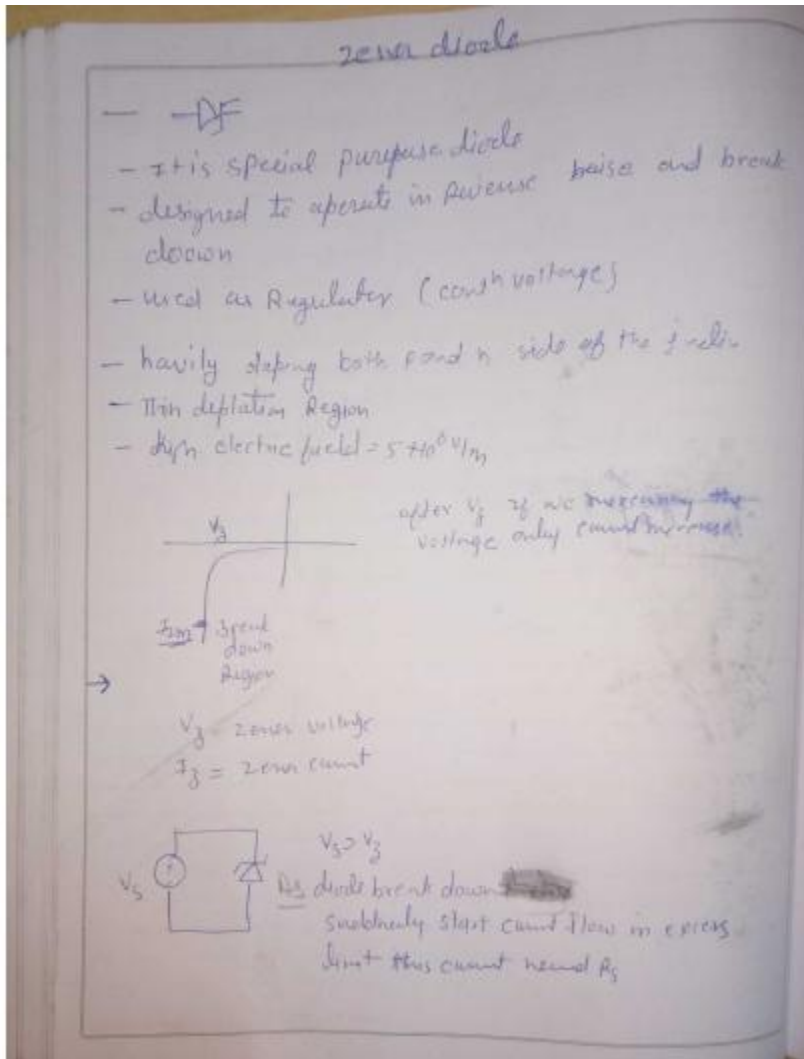 zener diode
- It is special purepuse diode
- designed to operate in Reverse baise and break
down
- used as Regulator (constn voltage)
- havily doping both p and n side of the
- Thin deplation Region
- high electric field = 5 *10 V/m
after Vz if we increasing the
voltage only current increase.
Vz
Izm
down
Region
Vz = zener voltage
Iz = zener current
Vs > Vz
Vs
Rs diode break down
suddenly start current flow in excess
limit this current Rs